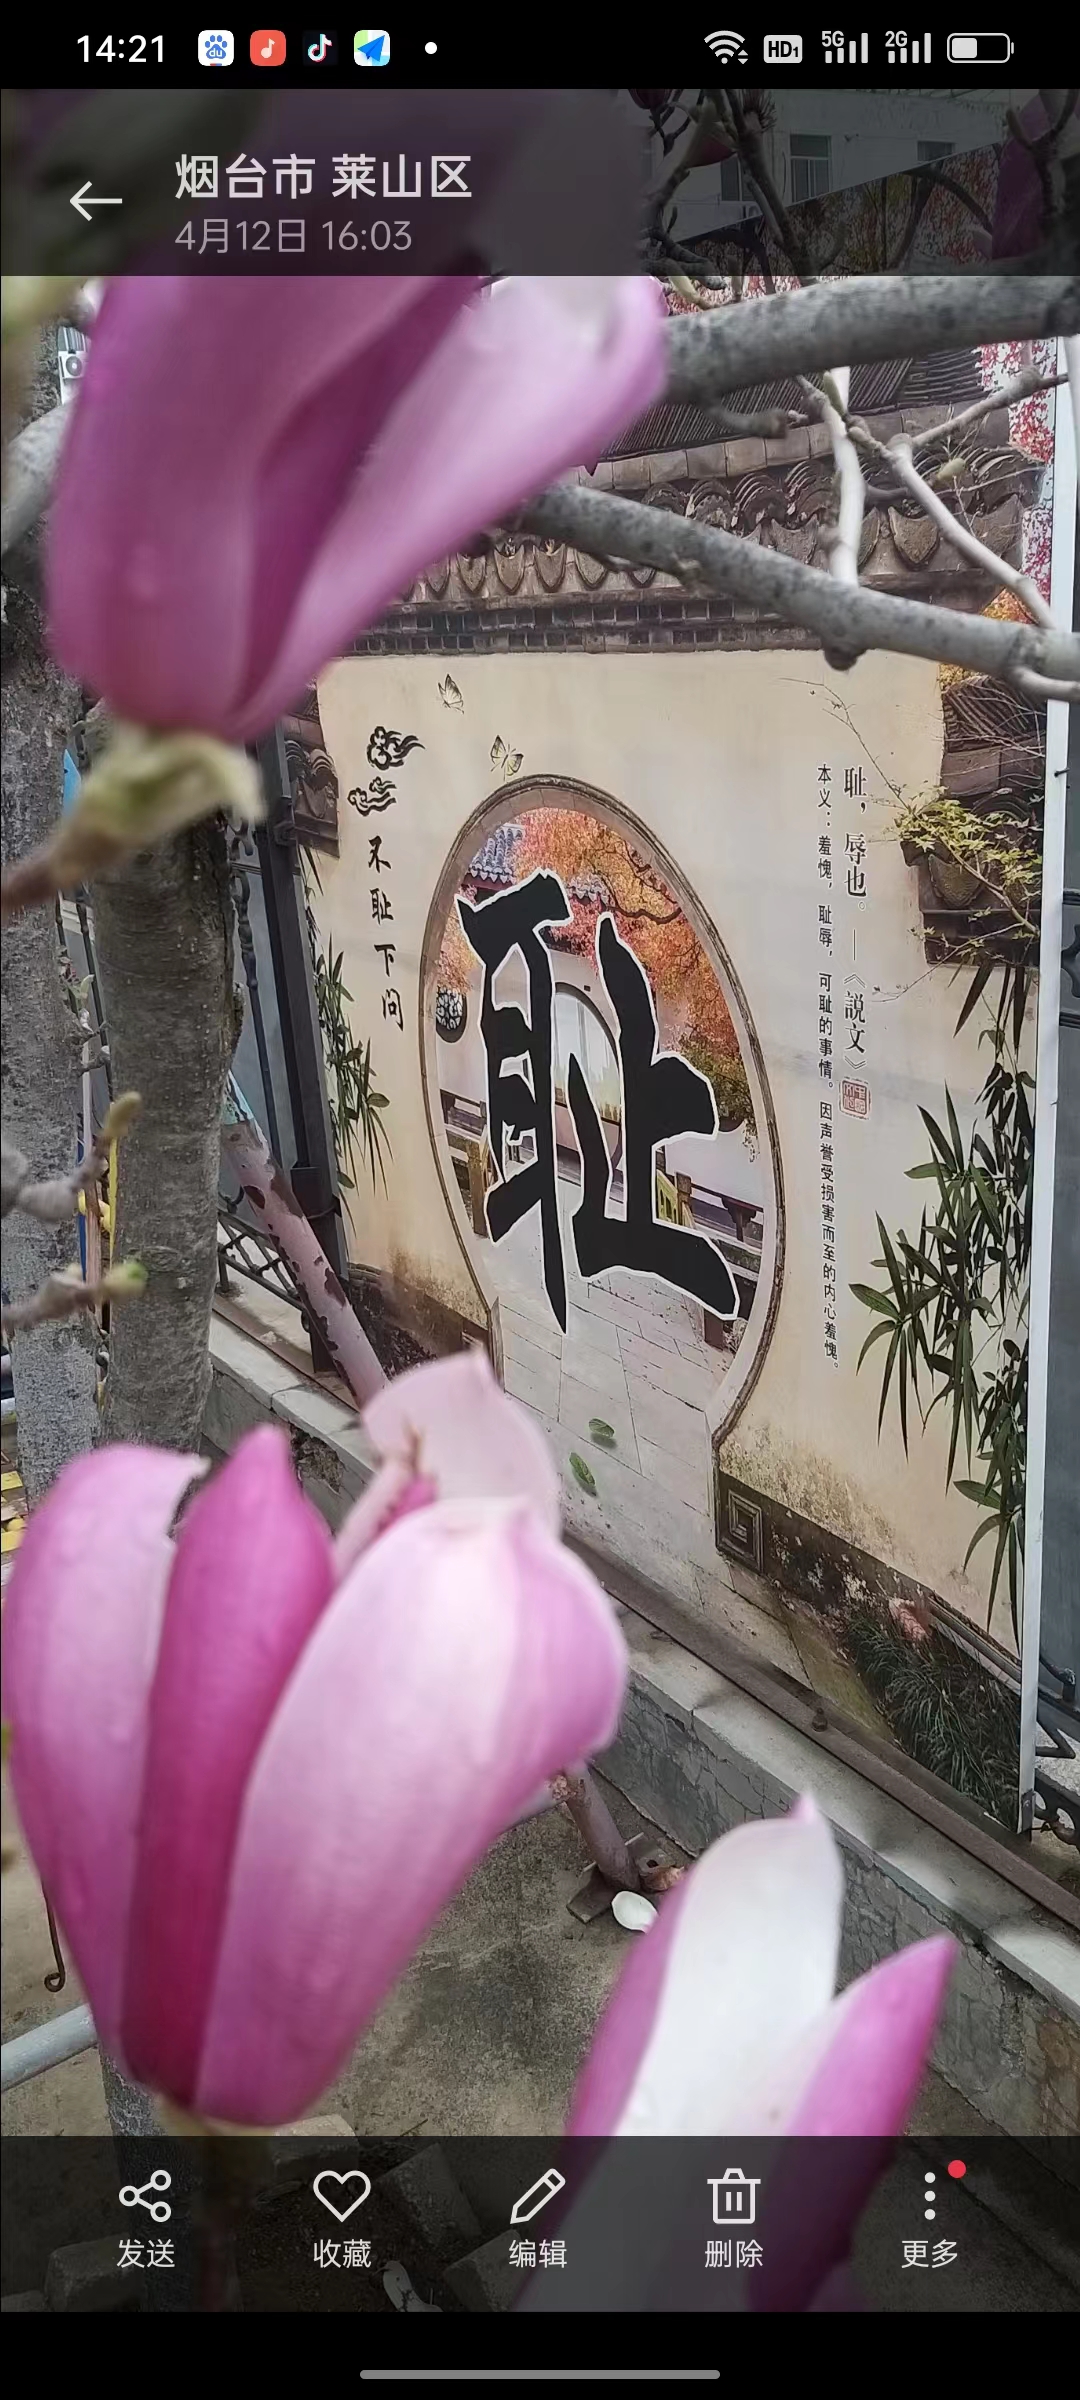 14:21
HD1
5G
2G
烟台市 莱山区
4月12日 16:03
耻，辱也。——《説文》
本义：羞愧，耻辱，可耻的事情。因声誉受损害而至的内心羞愧。
耻
不耻下问
发送
收藏
编辑
删除
更多